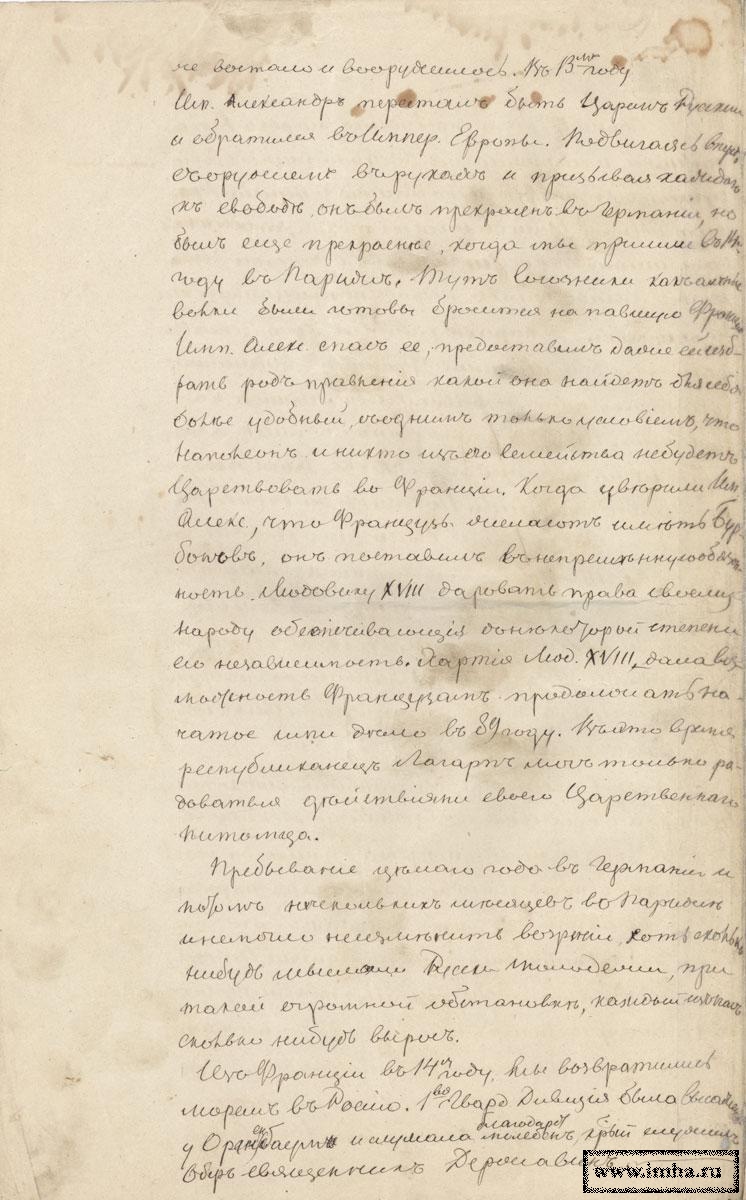 не востало и вооружилось. Въ 13мъ году
Имп. Александръ пересталъ быть Царемъ Русскимъ
и обратился въ Импер. Европы. Подвигаясь впередъ
съ оружіемъ въ рукахъ и призывая каждаго
къ свободѣ, онъ былъ прекрасенъ въ Германіи, но
былъ еще прекраснѣе, когда мы пришли въ 14мъ
году въ Парижъ. Тутъ Союзники какъ алчные
волки были готовы броситься на павшую Францію
Имп. Алекс. спасъ ее, предоставилъ даже ей изб-
рать родъ правленія какой она найдетъ для себя
болѣе удобный, съ однимъ только условіемъ, что
Наполеонъ и никто изъ его семейства не будетъ
Царствовать во Франціи. Когда увѣрили Имп.
Алекс., что Французы желаютъ имѣть Бур-
боновъ, онъ поставилъ въ непремѣнную обязан-
ность Людовику XVIII даровать права своему
народу обезпечивающія до нѣкоторой степени
его независимость. Хартія Люд. XVIII дала воз-
можность Французамъ продолжать на-
чатое ими дѣло въ 89 году. Въ это время
республиканецъ Лагарпъ могъ только ра-
доваться дѣйствіями своего Царственнаго
питомца.
Пребываніе цѣлаго года въ Германіи и
потомъ нѣсколькихъ мѣсяцевъ во Парижѣ
и не могло не измѣнить воззрѣній хоть сколько
нибудь мыслящей Русской молодежи, при
такой огромной обстановкѣ, каждый изъ насъ
сколько нибудь выросъ.
Изъ Франціи въ 14м году, мы возвратились
моремъ въ Росію. 1во Гвард. Дивизія была высажена
у Ораніенбаума и слушала благодарст молебенъ, кѣый служилъ
Оберъ священникъ Державинъ
www.imha.ru